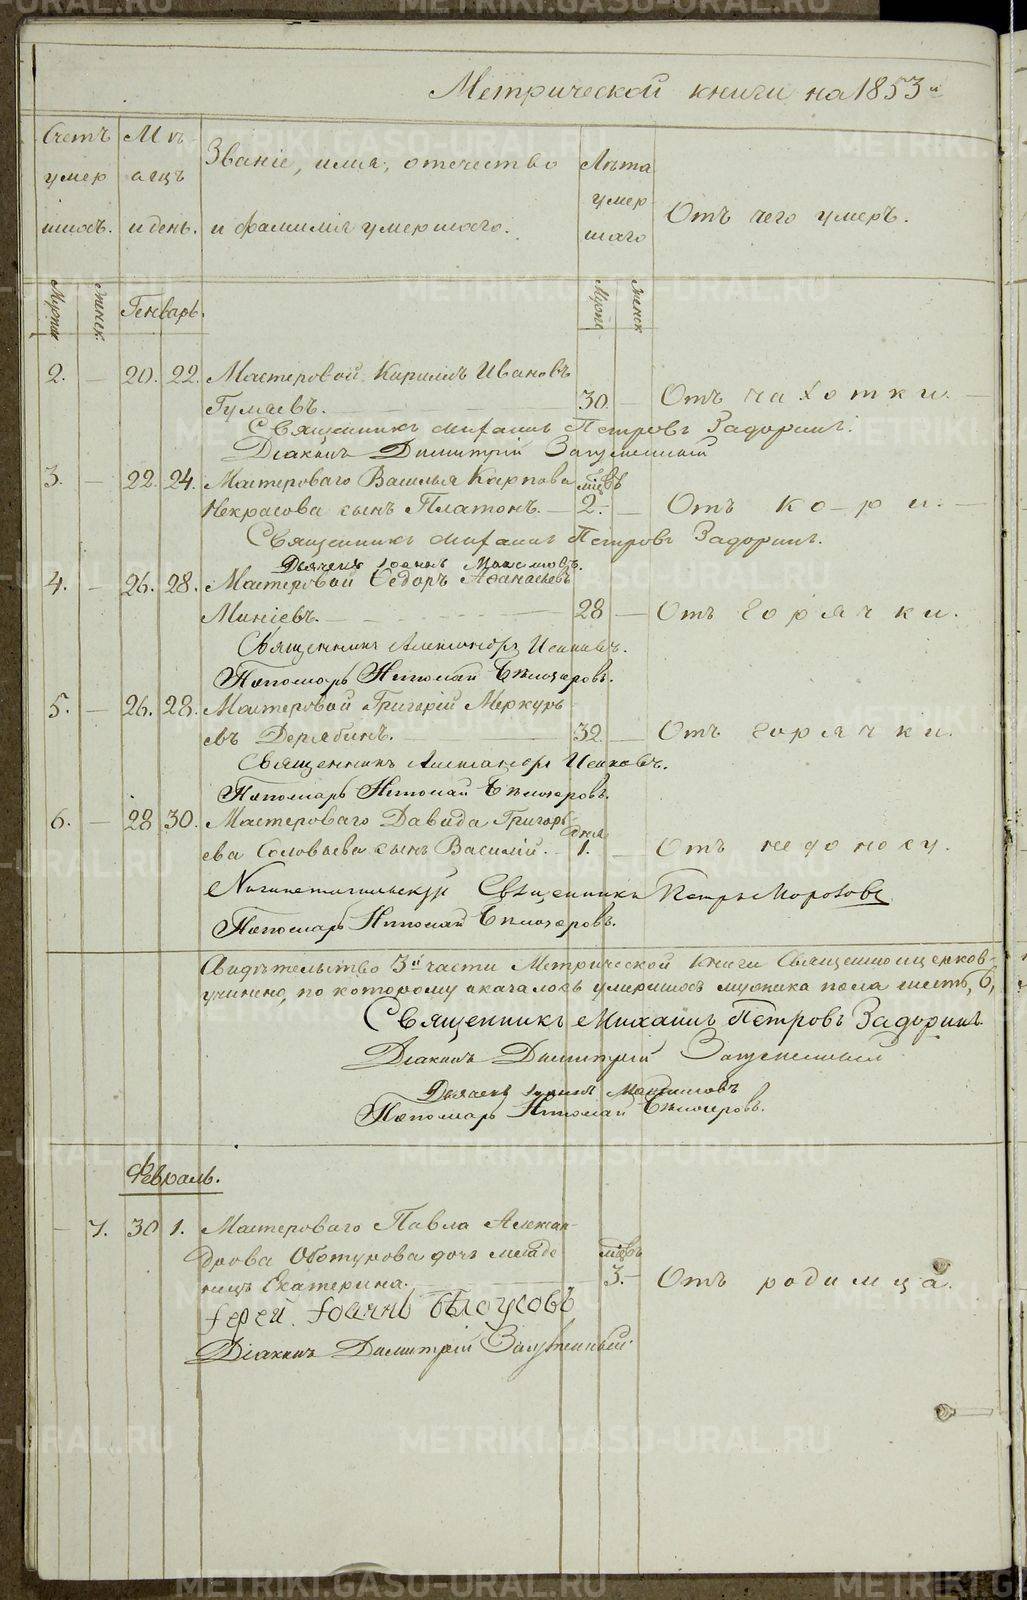 Метрической книги на 1853й
Счетъ умершихъ. Мѣсяцъ и день. Званіе, имя, отечество и фамилія умершаго. Лѣта умершаго Отъ чего умеръ.
Мужеск Женск. Генварь. Мужес Женск
2. — 20. 22. Мастеровой Кириллъ Ивановъ
Гуляевъ. 30 — Отъ чахотки. —
Священникъ Михаилъ Петровъ Задоринъ.
Діаконъ Димитрій
3. — 22. 24. Мастероваго Василья Карпова мѣсцъ
Некрасова сынъ Платонъ. — 2. — Отъ кори. —
Священникъ Михаилъ Петровъ Задоринъ.
Дьячекъ Іоаннъ Максимовъ.
4. — 26. 28. Мастеровой Ѳедоръ Аѳанасьевъ
Минѣевъ. — 28 — Отъ горячки.
Священникъ Александръ
Пономарь Николай Бѣлозеровъ.
5. — 26. 28. Мастеровой Григорій Меркурь
евъ Дерябинъ. 32 — Отъ горячки.
Священникъ Александръ
Пономарь Николай Бѣлозеровъ.
6. — 28 30. Мастероваго Давида Григорь- дня
ева Соловьева сынъ Василій. — 1. — Отъ недоносу.
Священникъ Петръ Морозовъ
Пономарь Николай Бѣлозеровъ.
Свидѣтельство 3й части Метрической книги Священноцерков-
учинено, по которому оказалось умершихъ мужеска пола шесть, 6,
Священникъ Михаилъ Петровъ Задоринъ.
Діаконъ Димитрій
Дьячекъ Іоаннъ Максимовъ
Пономарь Николай Бѣлозеровъ.
Февраль.
— 7. 30 1. Мастероваго Павла Алексан-
дрова Оботурова дочь младе мѣсцъ
нецъ Екатерина. 3. — Отъ родимца.
Іерей Іоаннъ Бѣлоусовъ
Діаконъ Димитрій
METRIKI.GASO-URAL.RU